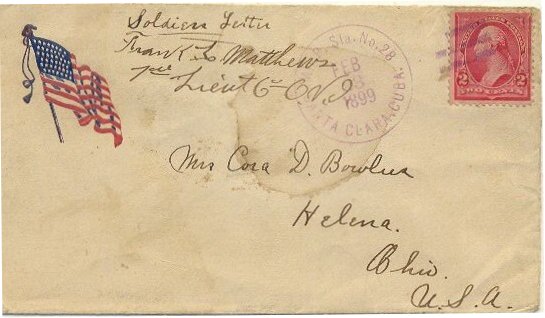 Soldiers Letter
Frank L Matthews
1st Lieut Co C
Sta. No. 28
FEB
1899
SANTA CLARA, CUBA.
2 2
TWO CENTS
Mrs Cora D. Bowlus
Helena.
Ohio.
U.S.A.